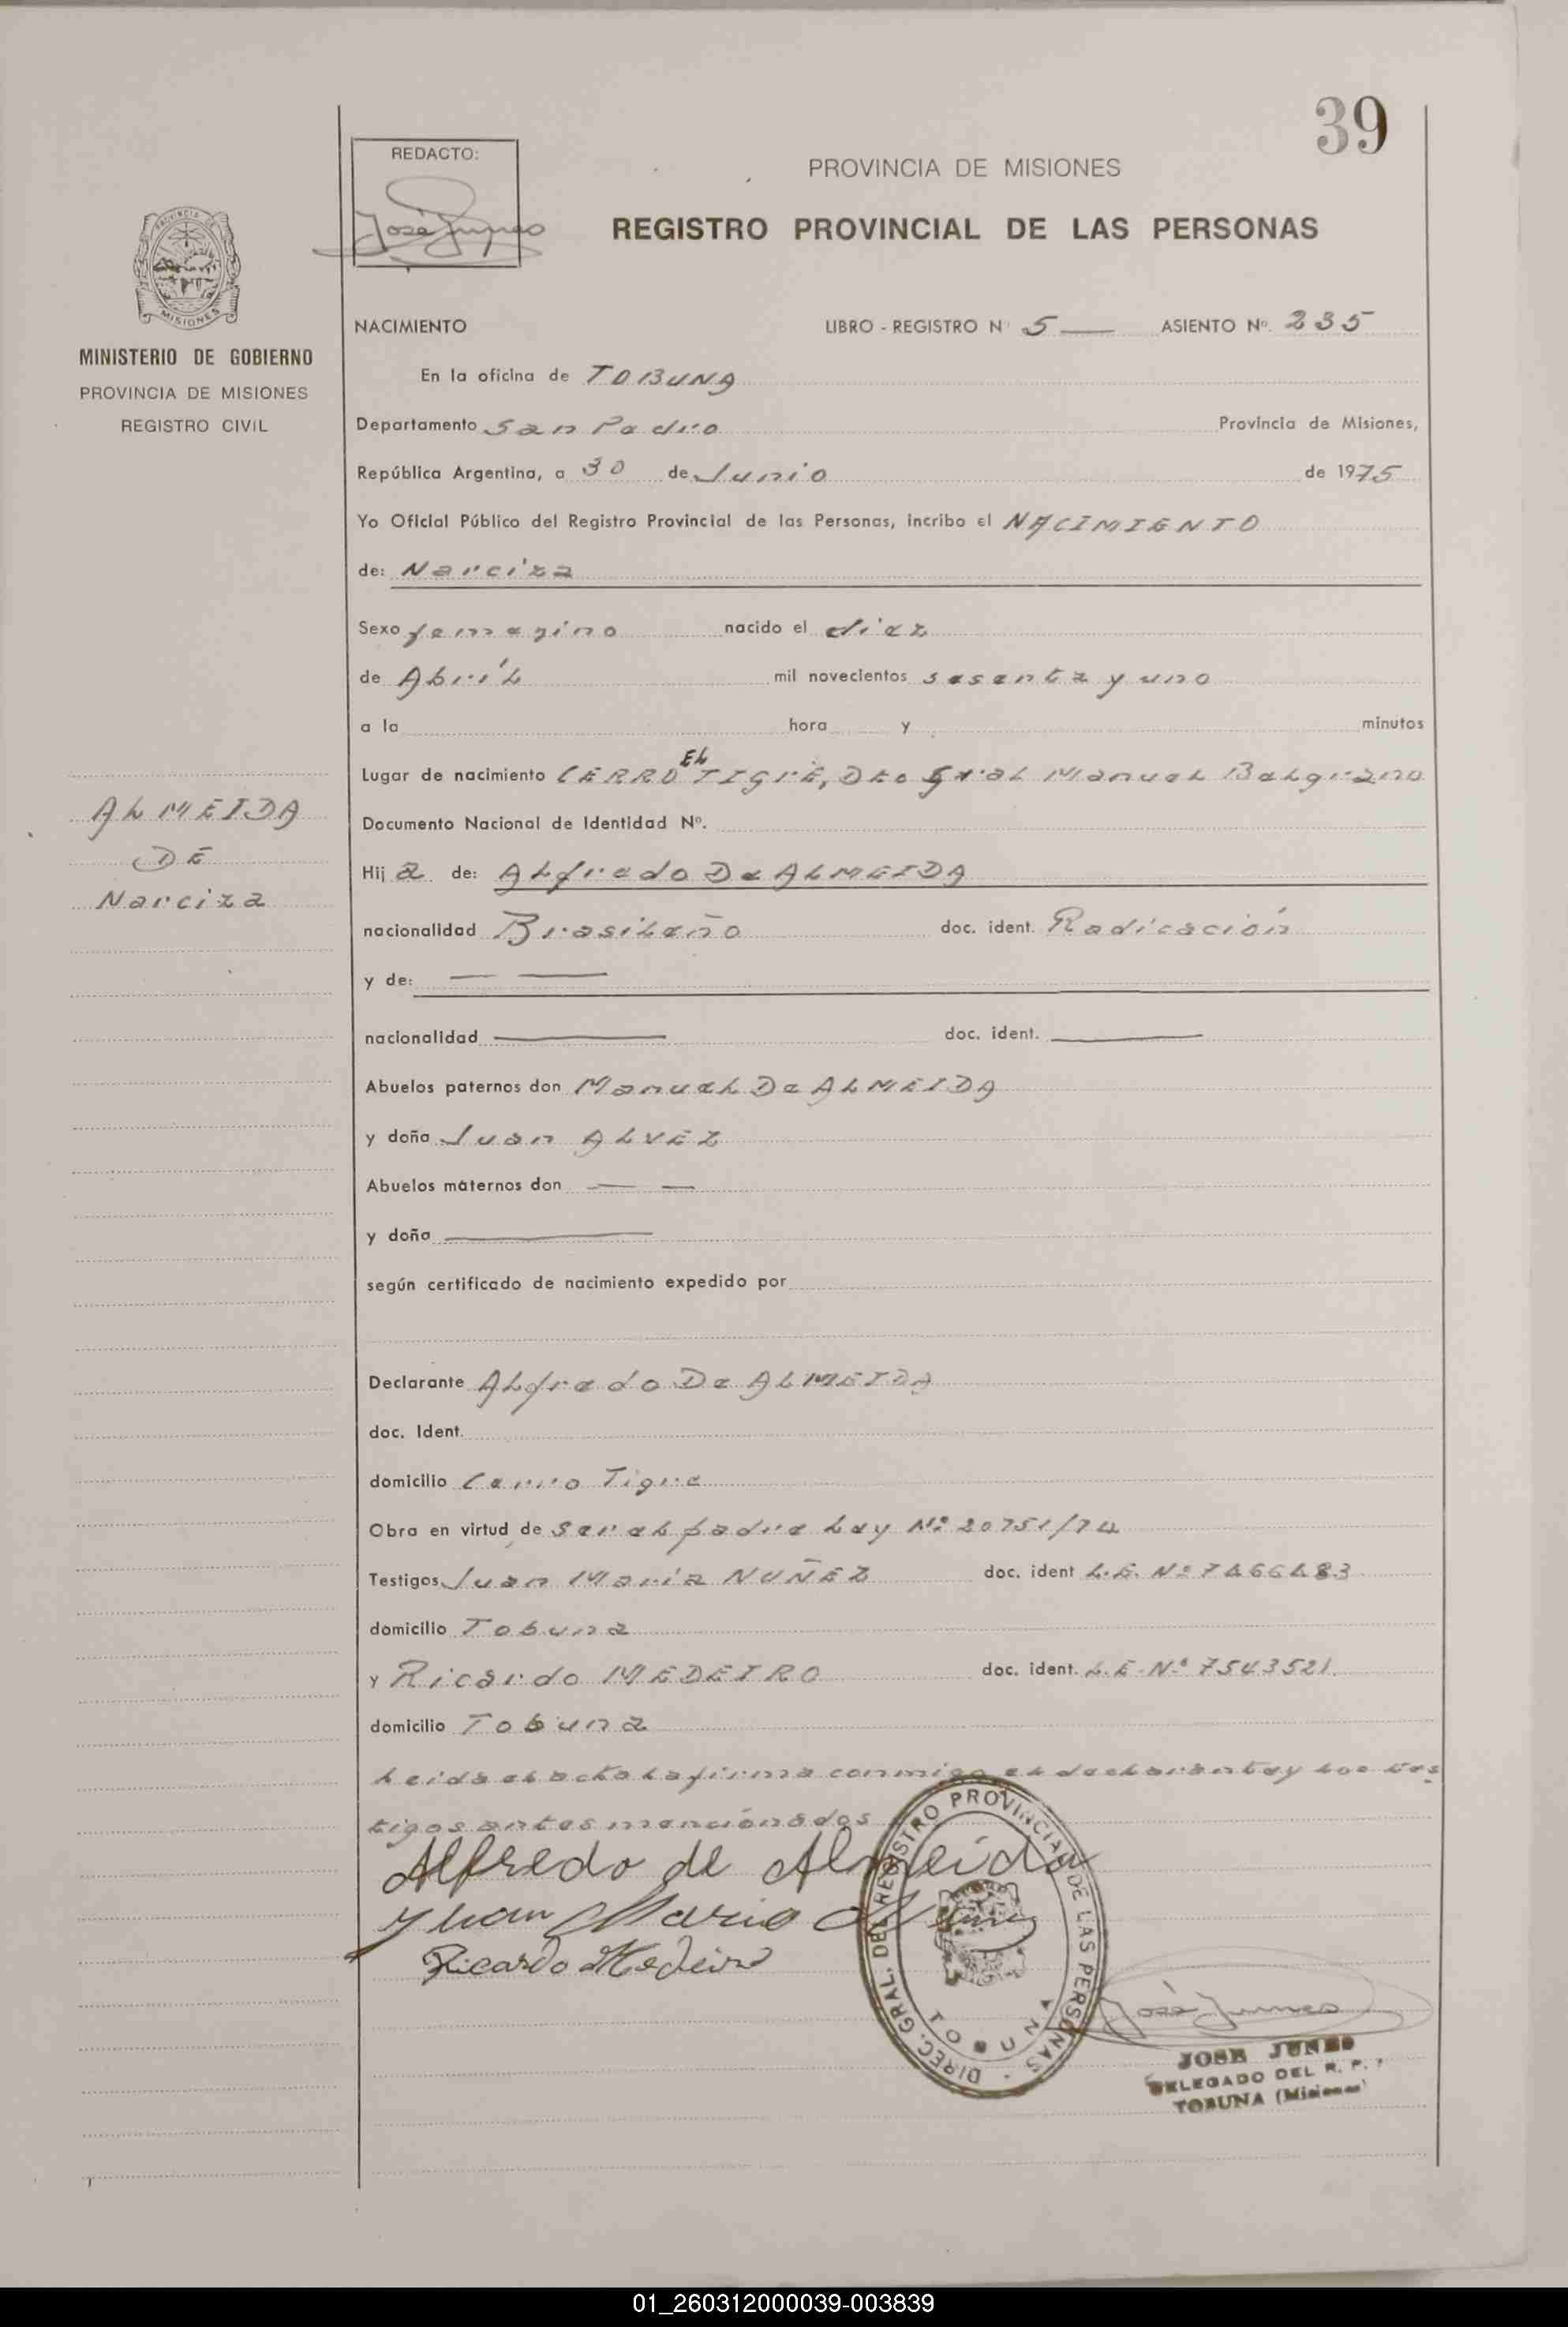 39
REDACTO:
PROVINCIA DE MISIONES
REGISTRO PROVINCIAL DE LAS PERSONAS
MISIONES
MINISTERIO DE GOBIERNO
PROVINCIA DE MISIONES
REGISTRO CIVIL
NACIMIENTO LIBRO - REGISTRO Nº 5 — ASIENTO Nº. 235
En la oficina de TOBUNA
Departamento San Pedro Provincia de Misiones,
República Argentina, a 30 de Junio de 1975
Yo Oficial Público del Registro Provincial de las Personas, incribo el NACIMIENTO
de: Narciza
Sexo femenino nacido el diez
de Abril mil novecientos sesenta y uno
a la hora y minutos
Lugar de nacimiento CERRO El TIGRE, Dto Gral Manuel Balgrano
ALMEIDA
DE
Narciza
Documento Nacional de Identidad Nº.
Hij a de: Alfredo De ALMEIDA
nacionalidad Brasileño doc. ident. Radicación
y de: — —
nacionalidad — doc. ident. —
Abuelos paternos don Manuel De ALMEIDA
y doña Juan ALVEZ
Abuelos maternos don — —
y doña —
según certificado de nacimiento expedido por
Declarante Alfredo De ALMEIDA
doc. Ident.
domicilio Cerro Tigre
Obra en virtud de ser el padre Ley Nº 20751/74
Testigos Juan Maria NUÑEZ doc. ident L.E. Nº 7466483
domicilio Tobuna
y Ricardo MEDEIRO doc. ident. L.E. Nº 7543521
domicilio Tobuna
Leida el acta la firma conmigo el declarante y los tes
tigos antes mencionados
Alfredo de Almeida
Juan Maria Nuñez
Ricardo Medeiro
DIREC. GRAL. DEL REGISTRO PROVINCIAL DE LAS PERSONAS
TOBUNA
JOSE JUNES
DELEGADO DEL R. P.
TOBUNA (Misiones)
01_260312000039-003839